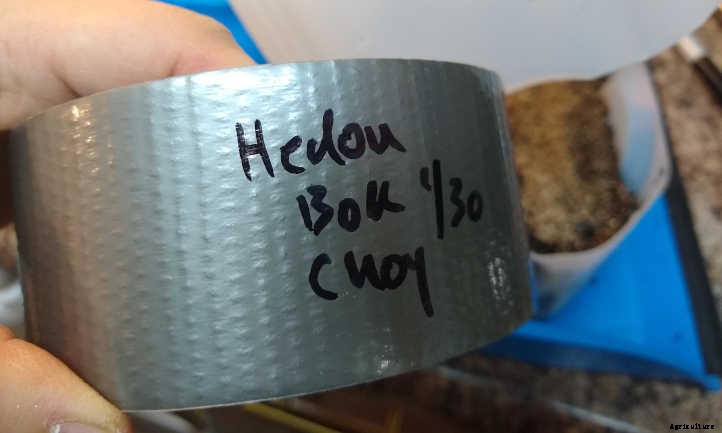 Hedou
Bok 1/30
Choy
Agriculture